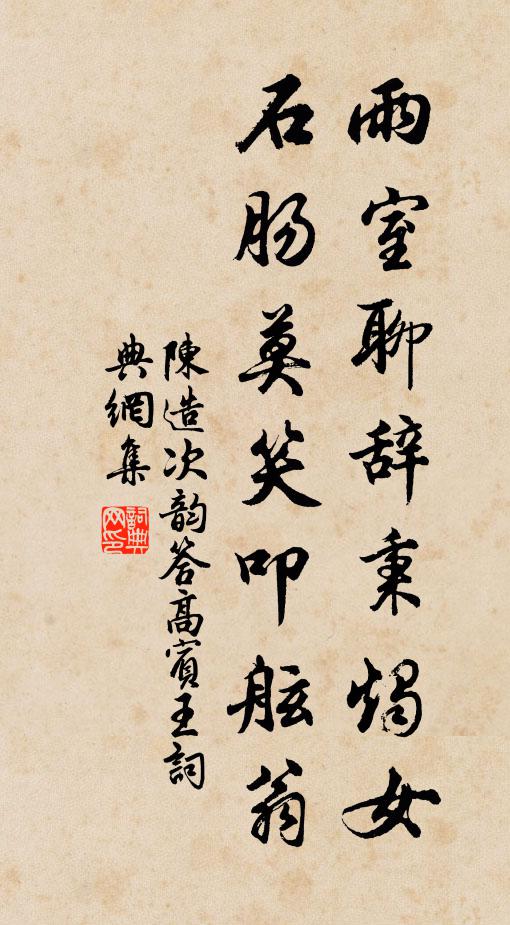 雨室聊辞秉燭女
石肠莫笑叩舷翁
陳造次韵答高賓王詞
典網集
詞典
网印